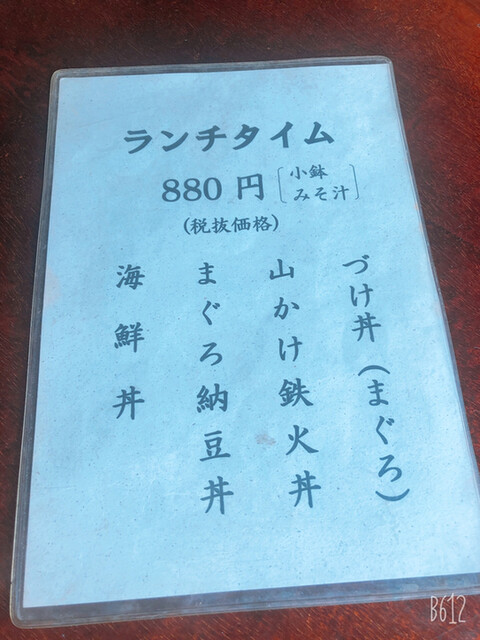 ランチタイム
880円
小鉢
みそ汁
(税抜価格)
づけ丼(まぐろ)
山かけ鉄火丼
まぐろ納豆丼
海鮮丼
B612